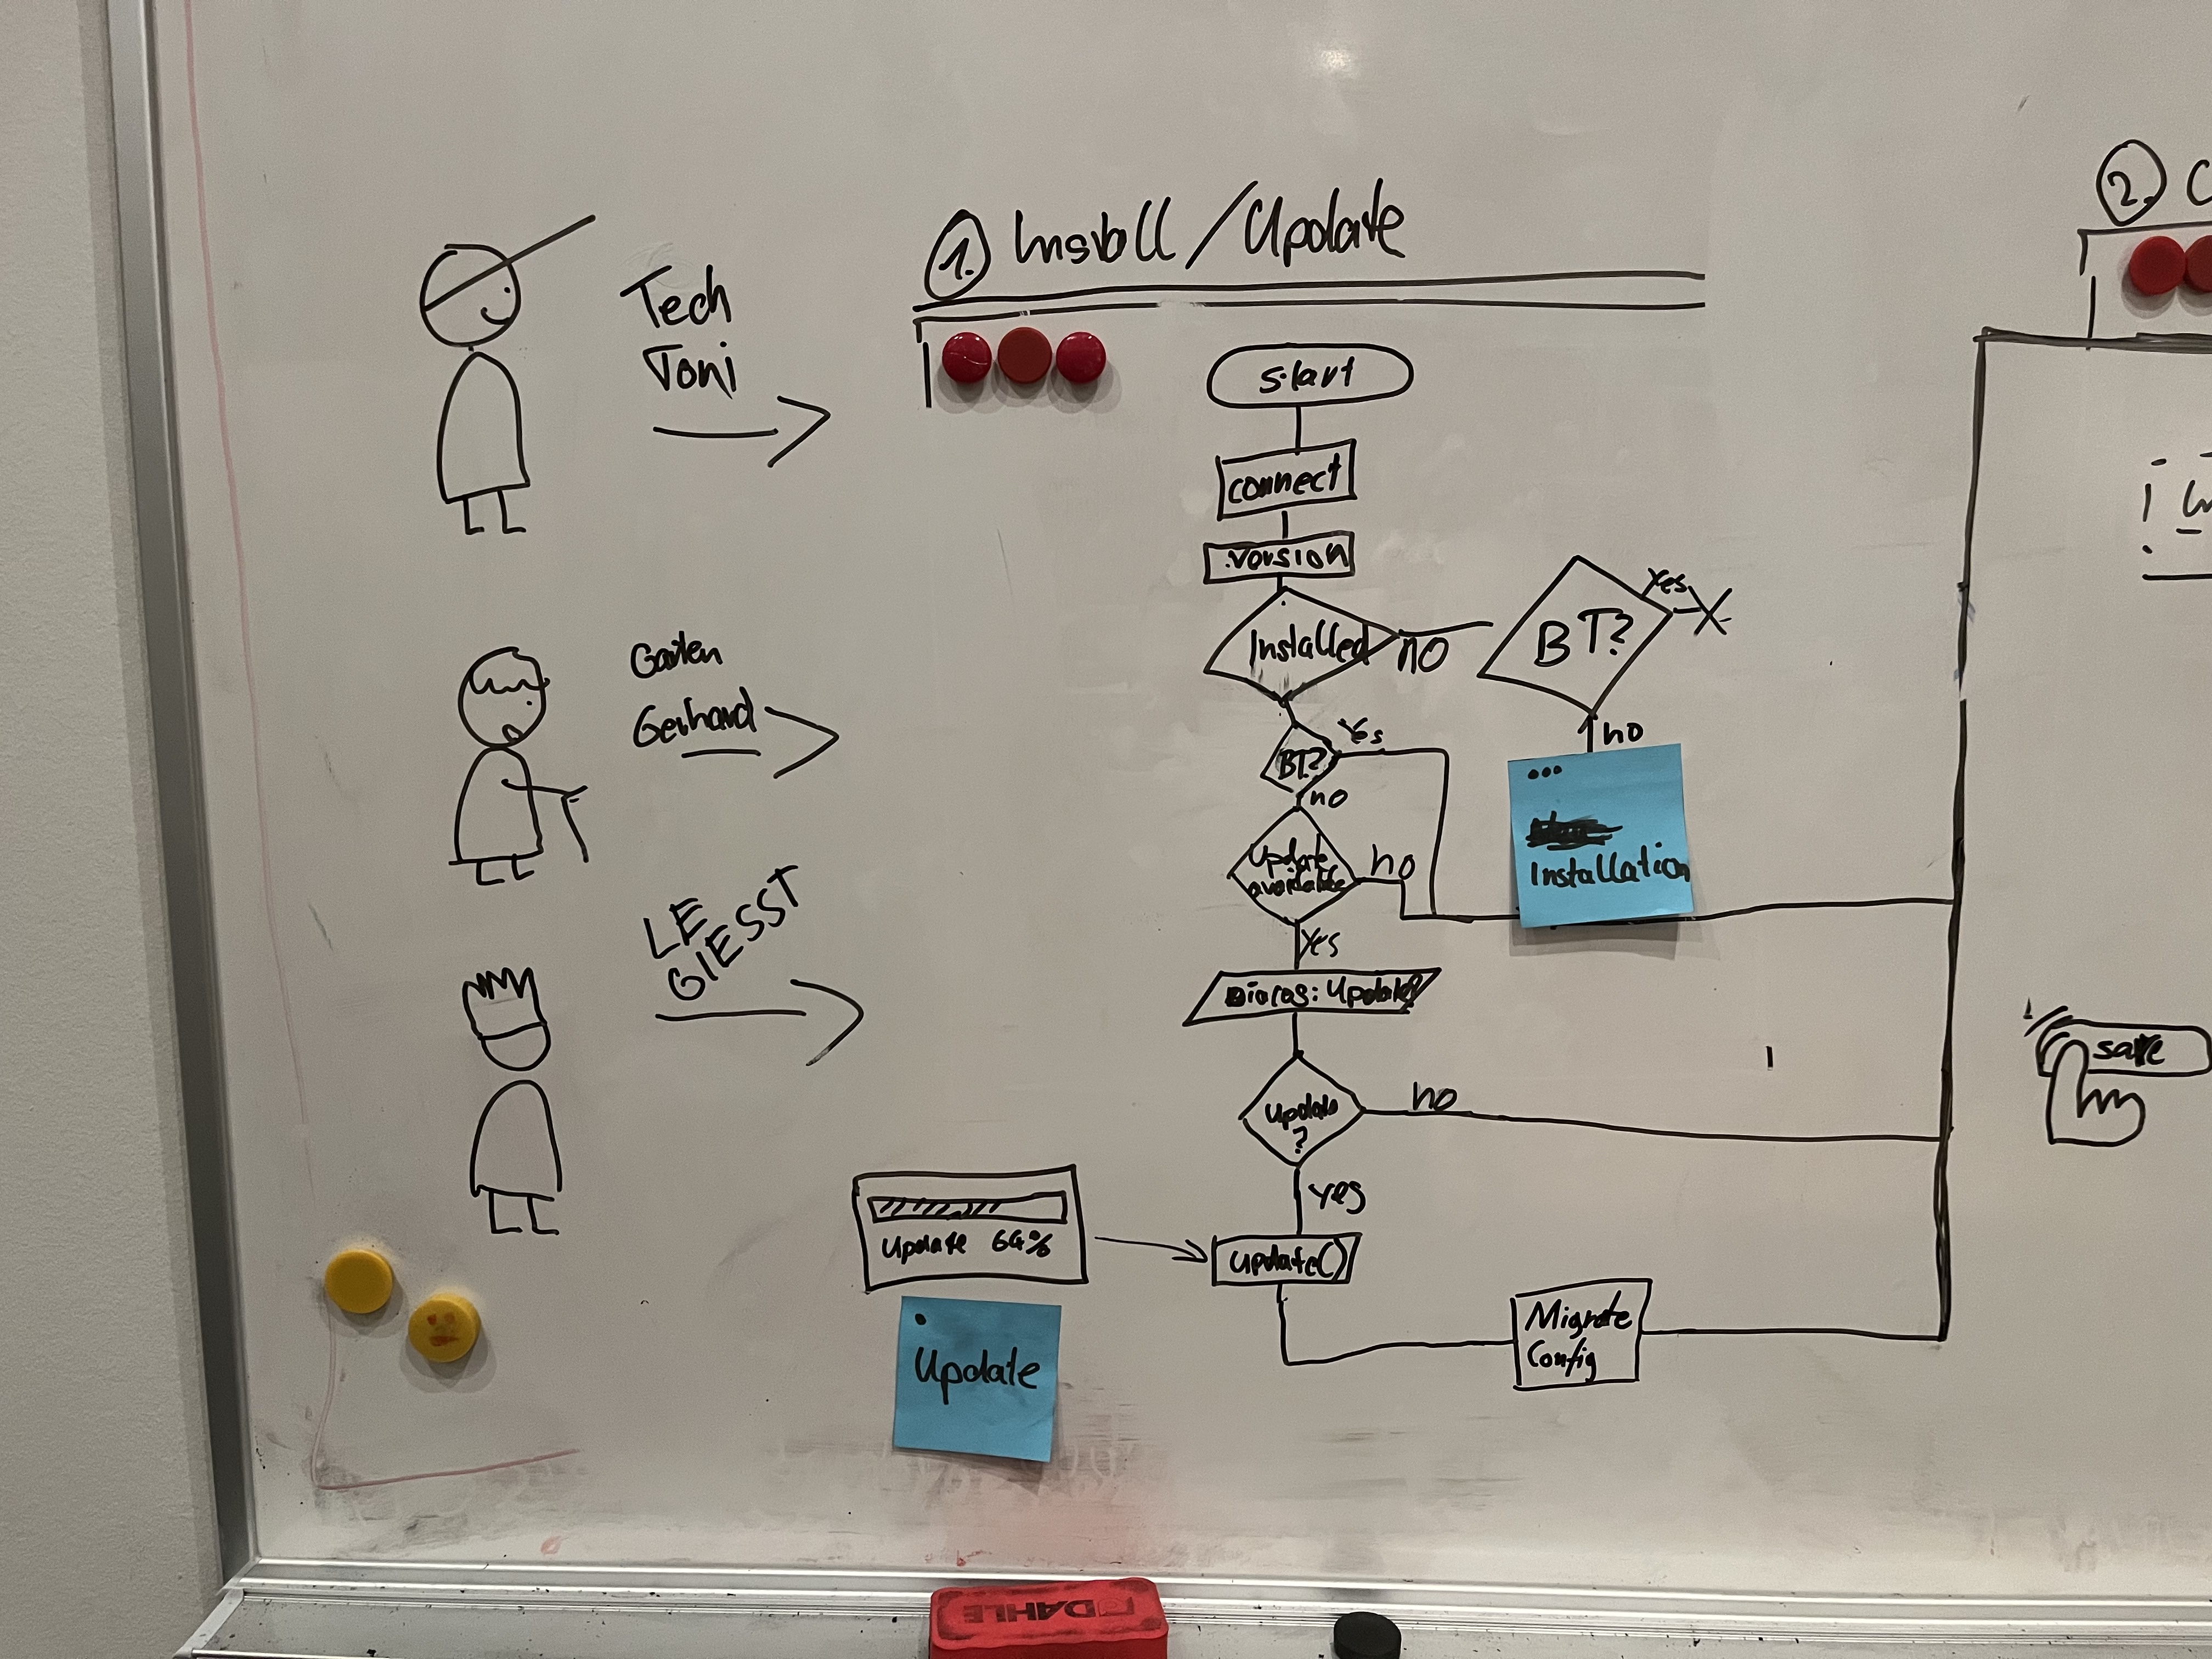 Tech
Toni
Garten
Gerhard
LE
GIESST
1. Install/Update
start
connect
version
Installed
no
BT?
yes
no
•••
Installation
BT?
Yes
no
Update
available
no
Yes
Update?
Update
?
no
yes
Update 64%
update()
Update
Migrate
Config
2. C
save
DAHLE